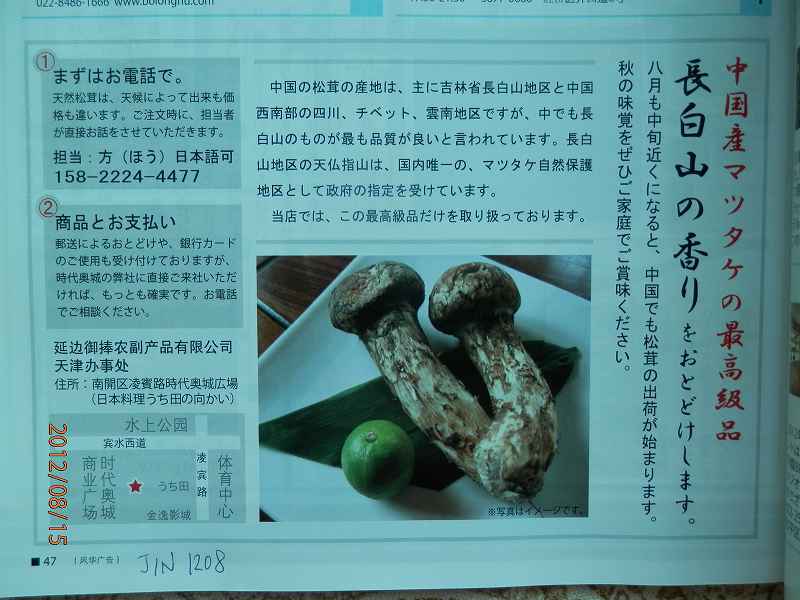 022-8486-1666 www.bolonghu.com
中国産マツタケの最高級品
長白山の香りをおとどけします。
八月も中旬近くになると、中国でも松茸の出荷が始まります。
秋の味覚をぜひご家庭でご賞味ください。
中国の松茸の産地は、主に吉林省長白山地区と中国
西南部の四川、チベット、雲南地区ですが、中でも長
白山のものが最も品質が良いと言われています。長白
山地区の天仏指山は、国内唯一の、マツタケ自然保護
地区として政府の指定を受けています。
当店では、この最高級品だけを取り扱っております。
①
まずはお電話で。
天然松茸は、天候によって出来も価
格も違います。ご注文時に、担当者
が直接お話をさせていただきます。
担当：方（ほう）日本語可
158-2224-4477
②
商品とお支払い
郵送によるおとどけや、銀行カード
のご使用も受け付けておりますが、
時代奥城の弊社に直接ご来社いただ
ければ、もっとも確実です。お電話
でご相談ください。
延边御捧农副产品有限公司
天津办事处
住所：南開区凌賓路時代奥城広場
（日本料理うち田の向かい）
水上公园
宾水西道
商业广场
时代奥城
うち田
金逸影城
凌宾路
体育中心
※写真はイメージです。
2012/08/15
■ 47 （风华广告） JIN 1208